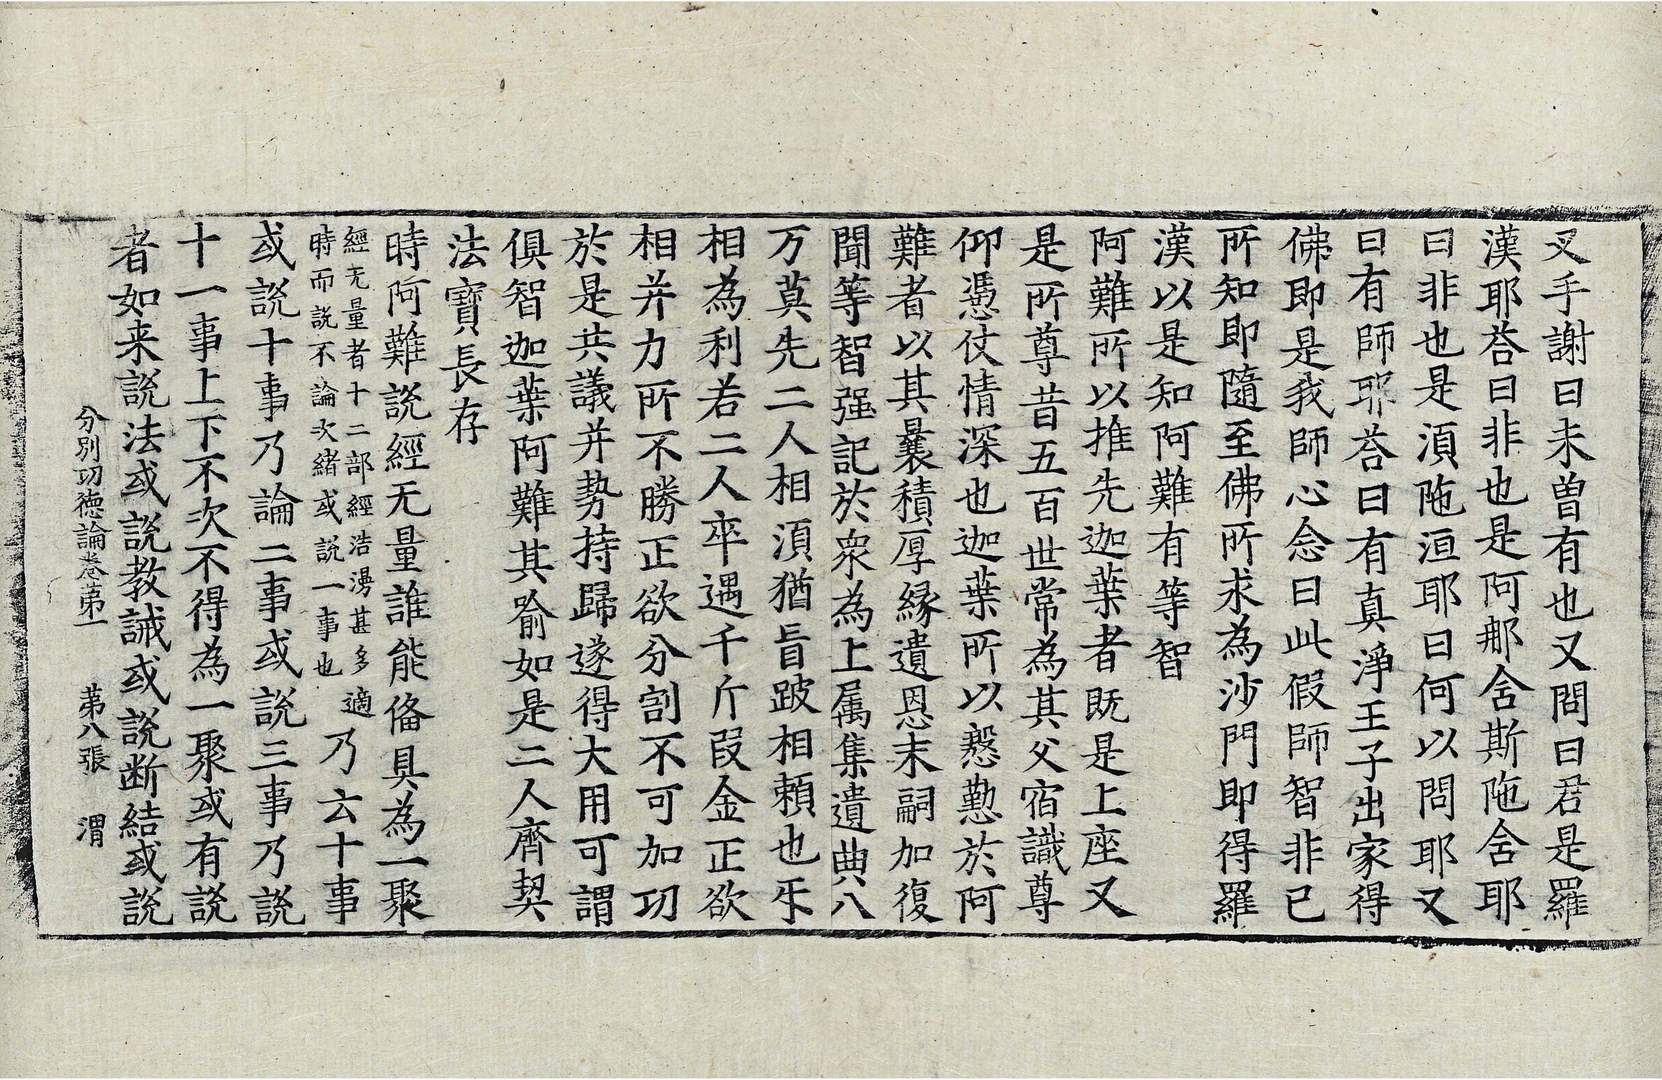 叉手謝曰未曽有也又問曰君是羅
漢耶荅曰非也是阿那舍斯陁舍耶
曰非也是湏陁洹耶曰何以問耶又
曰有師耶荅曰有真淨王子出家得
佛即是我師心念曰此假師智非已
所知即隨至佛所求為沙門即得羅
漢以是知阿難有等智
阿難所以推先迦葉者既是上座又
是所尊昔五百世常為其父宿識尊
仰憑仗情深也迦葉所以慇懃於阿
難者以其曩積厚縁遺恩末嗣加復
聞等智强記於衆為上属集遺典八
万莫先二人相湏猶盲跛相賴也牙
相為利若二人卒遇千斤叚金正欲
相并力所不勝正欲分割不可加㓛
於是共議并勢持歸遂得大用可謂
俱智迦葉阿難其喻如是二人齊契
法寳長存
時阿難說經无量誰能俻具為一聚
經无量者十二部經浩湧甚多適
時而説不論次緒或説一事也
乃云十事
或説十事乃論二事或説三事乃説
十一事上下不次不得為一聚或有説
者如来説法或説教誡或説断結或説
分別㓛徳論卷苐一　苐八張　渭